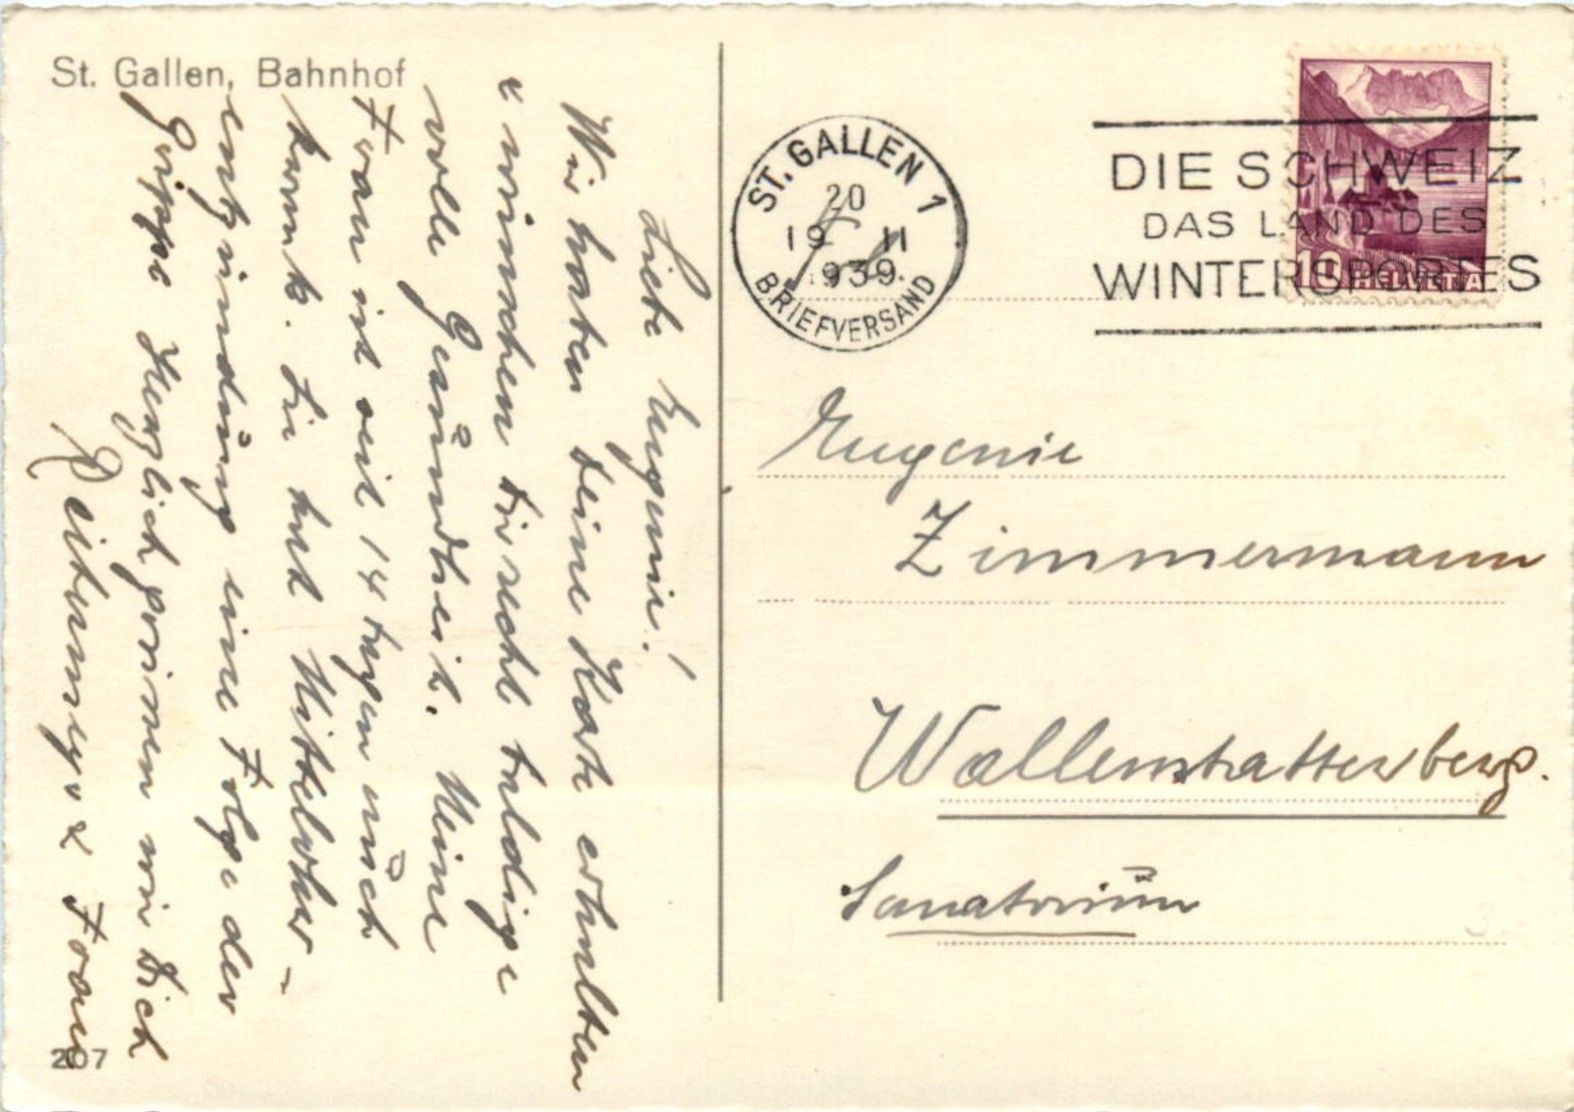 St. Gallen, Bahnhof
Liebe Eugenie!
Wir haben deine Karte erhalten
& wünschen dir recht baldige
volle Gesundheit. Meine
Frau ist seit 14 tagen auch
krank. Sie hat Mittelohr-
entzündung eine Folge der
Grippe Herzlich grüssen wir dich
& Frau
207
ST. GALLEN 1
20
19 II
1939
BRIEFVERSAND
DIE SCHWEIZ
DAS LAND DES
WINTERSPORTES
10 HELVETIA
Eugenie
Zimmermann
Wallenstatterberg.
Sanatorium